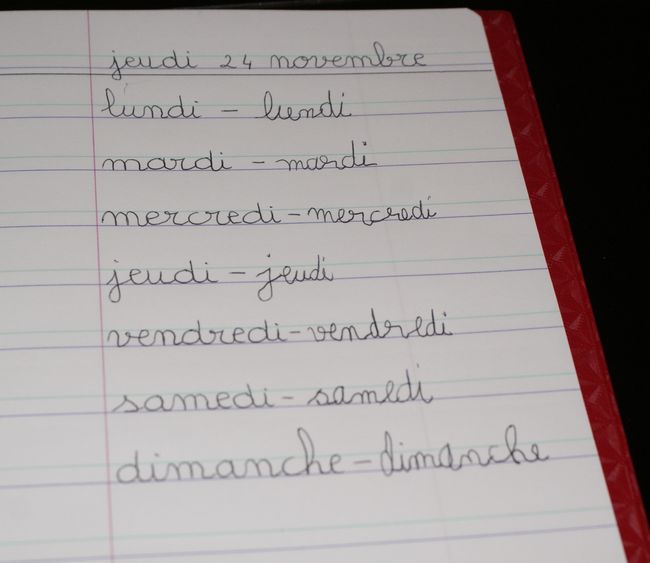 jeudi 24 novembre
lundi - lundi
mardi - mardi
mercredi - mercredi
jeudi - jeudi
vendredi - vendredi
samedi - samedi
dimanche - dimanche